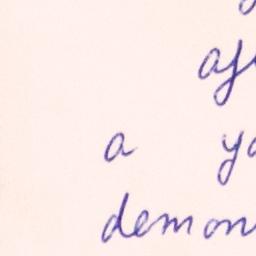 af
a ya
demon